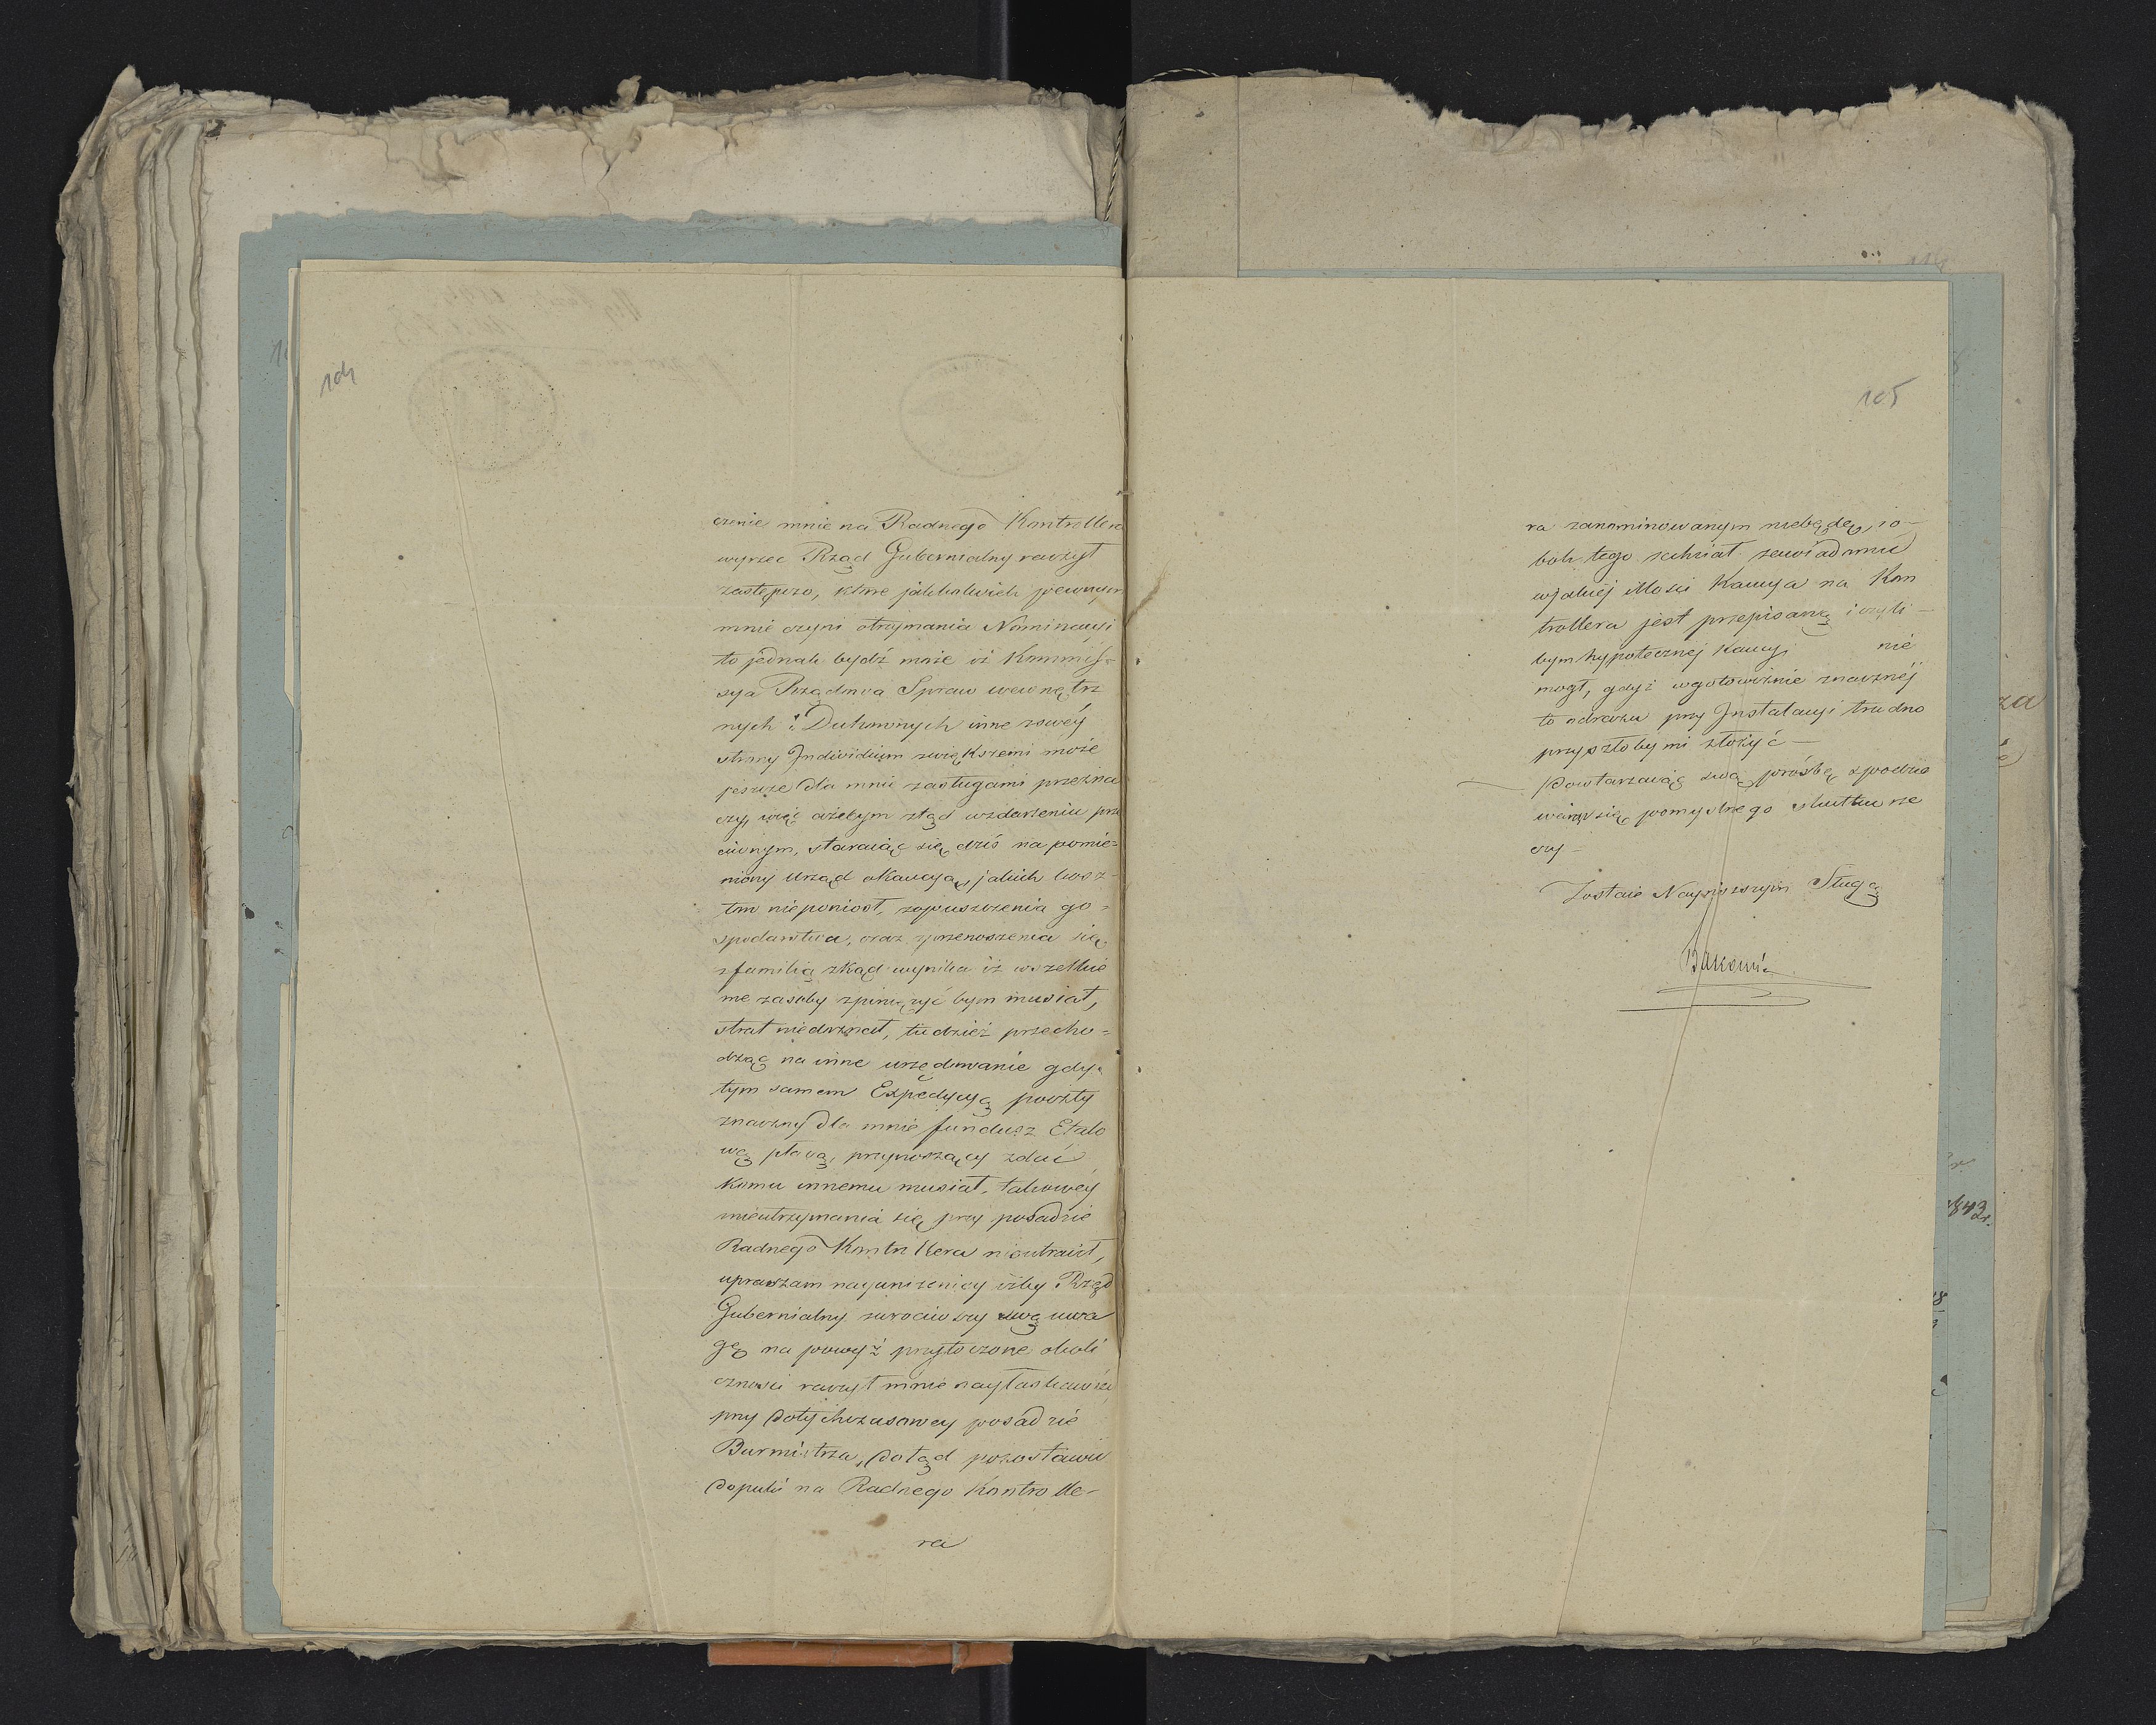 104
czenie mnie na Radnego Kontrollera
wyrzec Rząd Gubernialny raczył
zastępczo, które jakkolwiek pewnym
mnie czyni otrzymania Nominacyi
to jednak bydź może iż Kommis-
sya Rządowa Spraw wewnętrz
nych i Duchownych inne zswéy
strony Individuum zwiększemi może
jeszcze dla mnie zasługami przezna
czy, więc ażebym ztąd wzdarzeniu prze
ciwnym, staraiąc się dziś na pomie-
niony Urząd okaucyą, jakich kosz-
tow nieponiosł, zopuszczenia go-
spodarstwa, oraz zprzenoszenia się
zfamilią zkąd wynika iż wszelkie
me zasoby spieniężyć bym musiał,
strat niedoznał, tudzież przecho-
dząc na inne urzędowanie gdy
tym samem Expedycyą poczty
znaczny dla mnie fundusz Etato
wą płacą, przynoszący zdać
komu innemu musiał, takowéy
nieutrzymania się przy posadzie
Radnego Kontrollera nieutracił,
upraszam nayuniżeniey iżby Rząd
Gubernialny zwrociwszy swą uwa
gę na powyż przytoczone okoli
czności raczył mnie nayłaskawiey
przy dotychczasowey posadzie
Burmistrza, dotąd pozostawić
dopuki na Radnego Kontrolle-
ra
105
ra zanominowanym niebędę, io-
bok tego zechciał zawiadomić
wjakiéj Ilości Kaucya na Kon
trollera jest przepisaną i czyli
bym hypotecznej Kaucyi nie
mogł, gdyż wgotowiznie znacznéj
to odrazu przy Instalacyi trudno
przyszłoby mi złożyć —
Powtarzaiąc swą prośbę spodzie
waią się pomyślnego skutku rze
czy —
Zostaie Nayniższym Sługą
1843r.